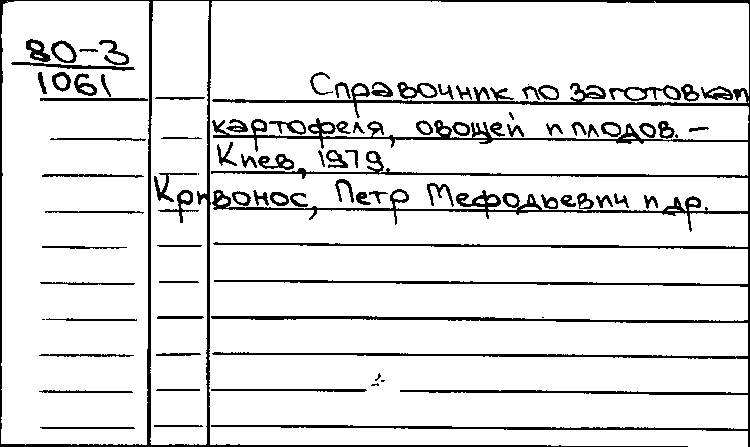 80-3
1061
Справочник по заготовкам
картофеля, овощей и плодов. –
Киев, 1979.
Кривонос, Петр Мефодьевич и др.